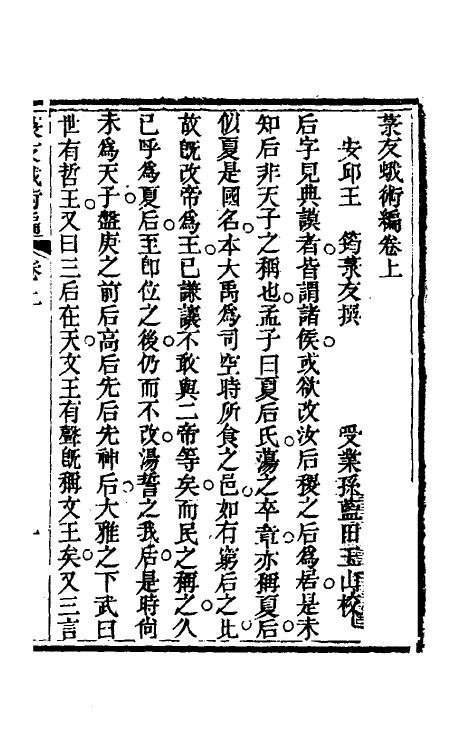 菉友蛾術編卷上
安邱王　筠菉友撰　受業孫藍田玉山校
后字見典謨者皆謂諸侯或欲改汝后稷之后為居是未
知后非天子之稱也孟子曰夏后氏蕩之卒章亦稱夏后
似夏是國名本大禹為司空時所食之邑如有窮后之比
故既改帝為王已謙讓不敢與二帝等矣而民之稱之久
已呼為夏后至卽位之後仍而不改湯誓之我后是時尙
未為天子盤庚之前后高后先后先神后大雅之下武曰
世有哲王又曰三后在天文王有聲既稱文王矣又三言
菉友蛾術編　卷上　一